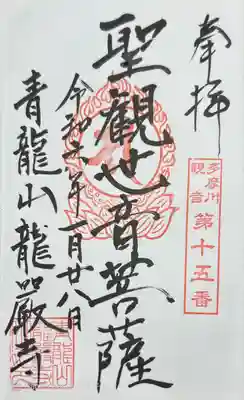 奉拝
多摩川
観音
第十五番
聖観世音菩薩
令和六年一月廿八日
青龍山龍嚴寺